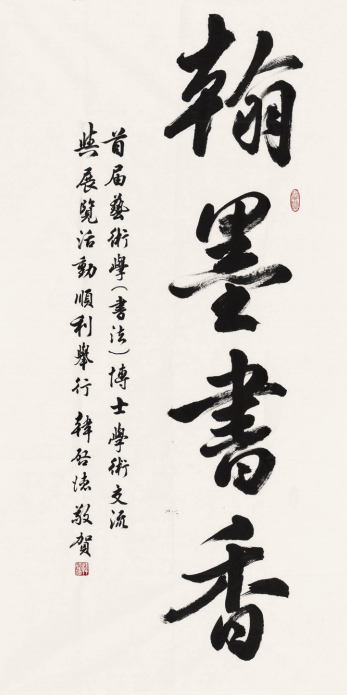 翰墨書香
首届藝術學(書法)博士學術交流
與展覽活動順利舉行 韓啓德敬賀